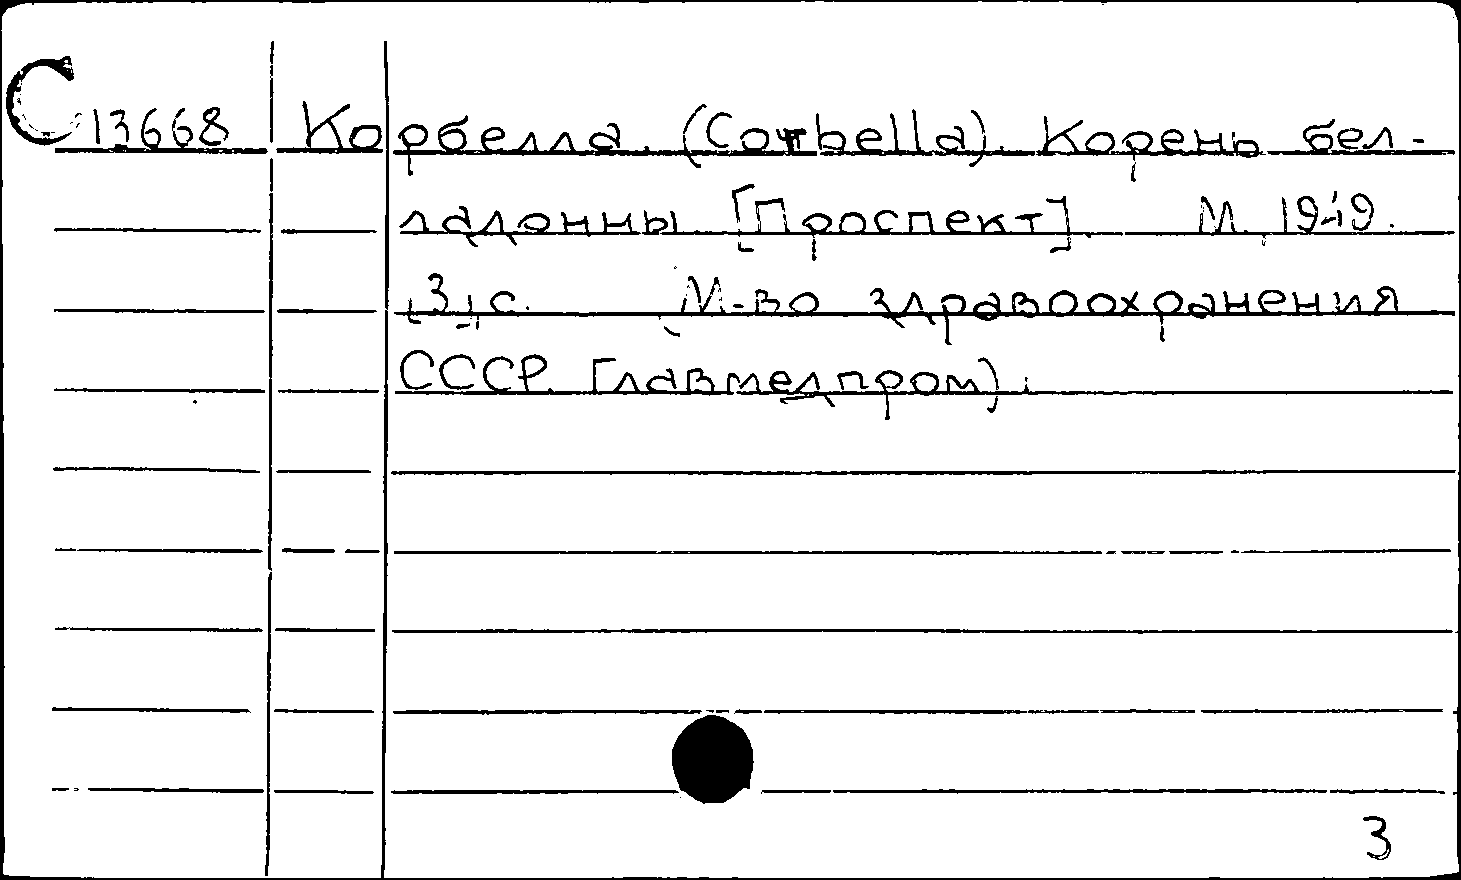 С 13668 Корбелла. (Corbella). Корень бел-
ладонны. [Проспект]. М., 1949.
[3] с. (М-во здравоохранения
СССР. Главмедпром).
3